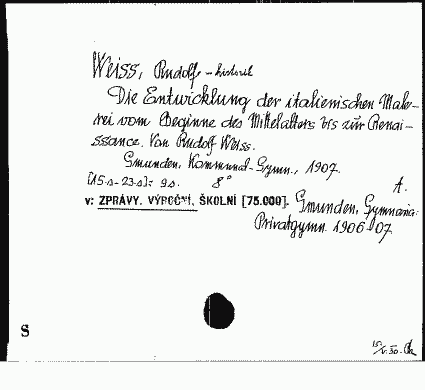 Weiss, Rudolf - historik
Die Entwicklung der italienischen Male-
rei vom Beginne des Mittelalters bis zür Renai-
ssance. Von Rudolf Weiss.
Gmunden, Kommunal-Gymn., 1907.
[15.s-23.s]: 9s. 8° A.
v: ZPRÁVY. VÝROČNÍ, ŠKOLNÍ [75.000]. Gmunden, Gymnasia:
Privatgymn. 1906-07.
S